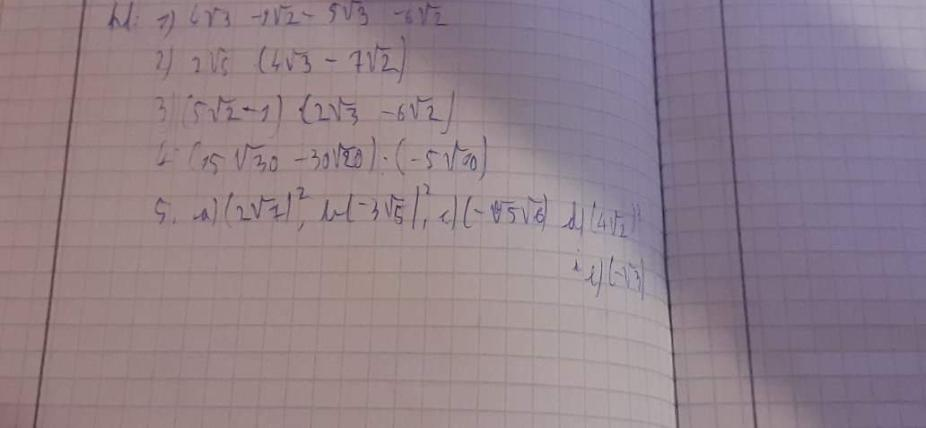 1) 4√3 - 2√2 - 5√3 - 6√2
2) 2√5 (4√3 - 7√2)
3) (5√2 - 1) (2√3 - 6√2)
4. (15√30 - 30√20) : (-5√10)
5. a) (2√7)², b) (-3√5)², c) (- √5√6) d) (4√2)
i e) (-√3)